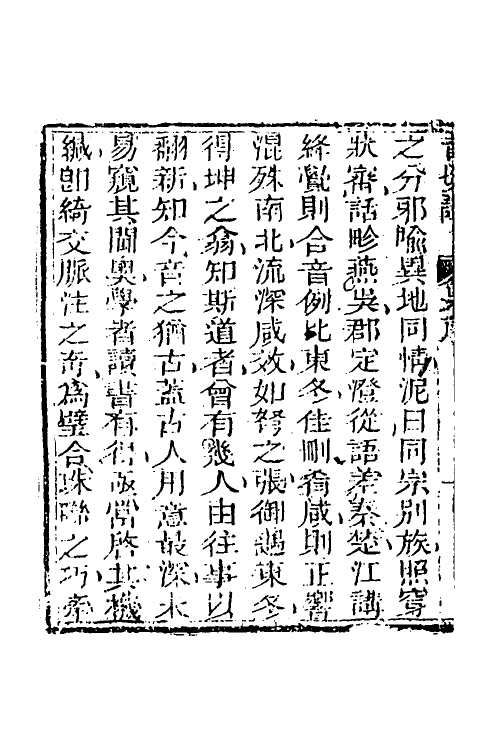 之分邪喻異地同情泥曰同宗別族照穿
狀審話畛燕吳郡定澄從語差秦楚江講
絳覺則合音例比東冬佳刪肴咸則正響
混殊南北流深咸效如弩之張御遇東冬
得坤之翕知斯道者曾有幾人由往事以
翻新知今音之猶古蓋古人用意最深未
易窺其閫奧學者讀書有得啟常啓其機
緘即綺交脈注之奇為璧合珠聯之巧牽